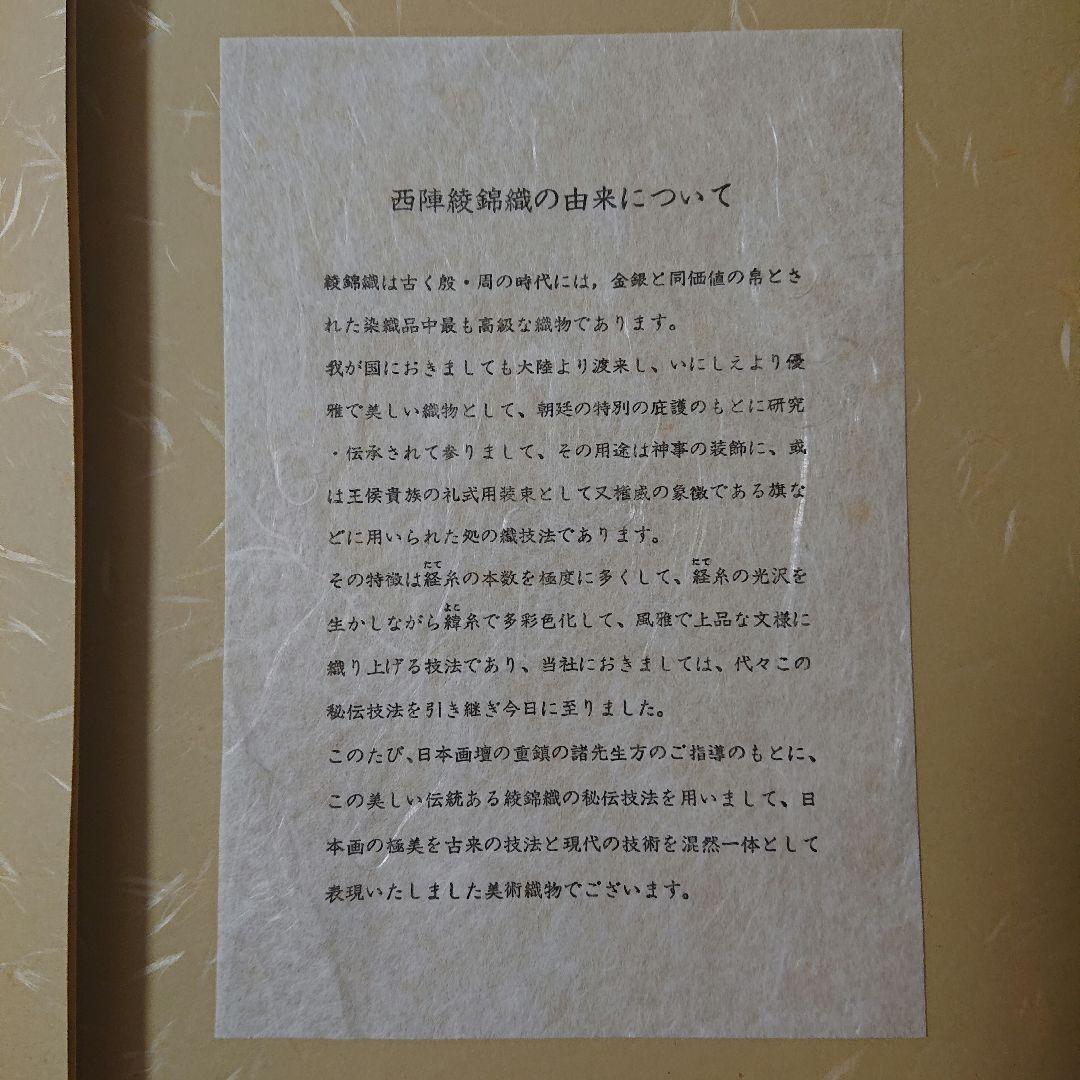 西陣綾錦織の由来について
綾錦織は古く殷・周の時代には，金銀と同価値の帛とさ
れた染織品中最も高級な織物であります。
我が国におきましても大陸より渡来し、いにしえより優
雅で美しい織物として、朝廷の特別の庇護のもとに研究
・伝承されて参りまして、その用途は神事の装飾に、或
は王侯貴族の礼式用装束として又権威の象徴である旗な
どに用いられた処の織技法であります。
その特徴は経糸の本数を極度に多くして、経糸の光沢を
生かしながら緯糸で多彩色化して、風雅で上品な文様に
織り上げる技法であり、当社におきましては、代々この
秘伝技法を引き継ぎ今日に至りました。
このたび、日本画壇の重鎮の諸先生方のご指導のもとに、
この美しい伝統ある綾錦織の秘伝技法を用いまして、日
本画の極美を古来の技法と現代の技術を混然一体として
表現いたしました美術織物でございます。